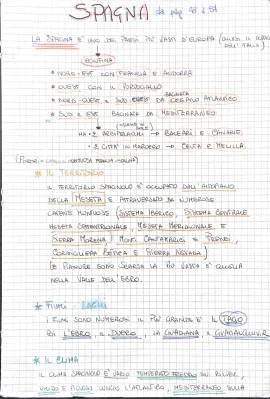 SPAGNA da pag. 48 a 51
LA SPAGNA È UNO DEI PAESI PIÙ VASTI D'EUROPA (QUASI IL DOPPIO DELL'ITALIA)
CONFINA
* NORD-EST CON FRANCIA E ANDORRA
* OVEST CON IL PORTOGALLO
BAGNATA
* NORD-OVEST E SUD OVEST DA OCEANO ATLANTICO
* SUD E EST BAGNATA DA MEDITERRANEO
HA 2 ARCIPELAGHI → BALEARI E CANARIE
2 CITTÀ IN MAROCCO → CEUTA E MELILLA
* IL TERRITORIO
IL TERRITORIO SPAGNOLO È OCCUPATO DALL'ALTOPIANO
DELLA MESETA E ATTRAVERSATO DA NUMEROSE
CATENE MONTUOSE (SISTEMA IBERICO, SISTEMA CENTRALE
MESETA SETTENTRIONALE, MESETA MERIDIONALE E
SIERRA MORENA) MONTI CANTABRICI E PIRENEI,
CORDIGLIERA BETICA E SIERRA NEVADA)
LE PIANURE SONO SCARSE LA PIÙ VASTA È QUELLA
NELLA VALLE DEL EBRO.
* FIUMI
I FIUMI SONO NUMEROSI IL PIÙ GRANDE È IL TAGO
POI L'EBRO, IL DUERO, LA GUADIANA E GUADALQUIVIR
* IL CLIMA
IL CLIMA SPAGNOLO È VARIO TEMPERATO FREDDO SUI RILIEVI,
UMIDO E PIOVOSO VERSO L'ATLANTICO, MEDITERRANEO SULLA